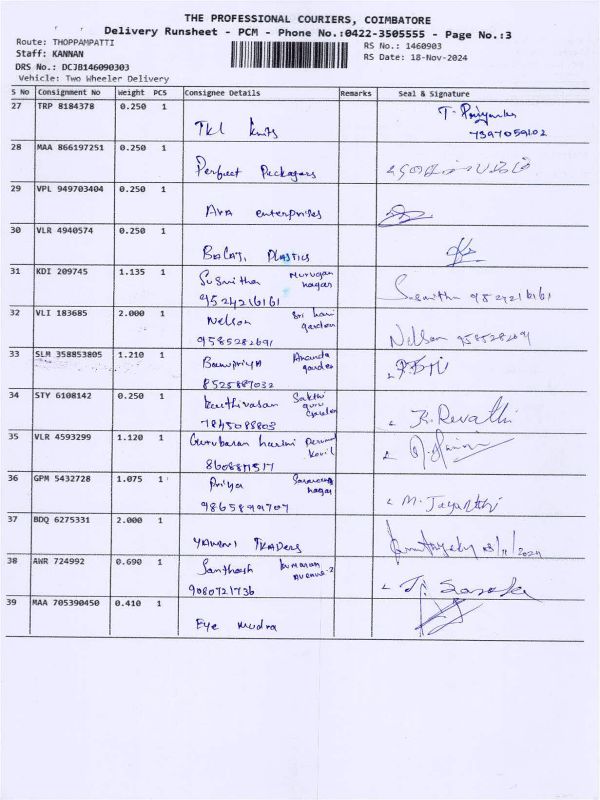 THE PROFESSIONAL COURIERS, COIMBATORE
Delivery Runsheet - PCM - Phone No.:0422-3505555 - Page No.:3
Route: THOPPAMPATTI
Staff: KANNAN
DRS No.: DCJB146090303
Vehicle: Two Wheeler Delivery
RS No.: 1460903
RS Date: 18-Nov-2024
S No Consignment No Weight PCS Consignee Details Remarks Seal & Signature
27 TRP 8184378 0.250 1 T. Priyanka
Tkl knits 7397059102
28 MAA 866197251 0.250 1
Perfect Packagers
29 VPL 949703404 0.250 1
Ava enterprises
30 VLR 4940574 0.250 1
Balaji Plastics
31 KDI 209745 1.135 1 Susmitha Murugan nagar
9524216161 Susmitha 9524216161
32 VLI 183685 2.000 1 Nelson Sri hari garden
9585282691 Nelson
33 SLM 358853805 1.210 1 Banupriya Ananda garden
8525887032
34 STY 6108142 0.250 1 Keerthivasan Sakthi guru garden
7845088803 K. Revathi
35 VLR 4593299 1.120 1 Gurubaran harini Perumal Kovil
36 GPM 5432728 1.075 1 Priya nagar
9865899707 M. Jayanthi
37 BDQ 6275331 2.000 1
TRADERS 18/11/2024
38 AWR 724992 0.690 1 Santhosh Kumaran Avenue-2
9080721736
39 MAA 705390450 0.410 1
Eye mudra